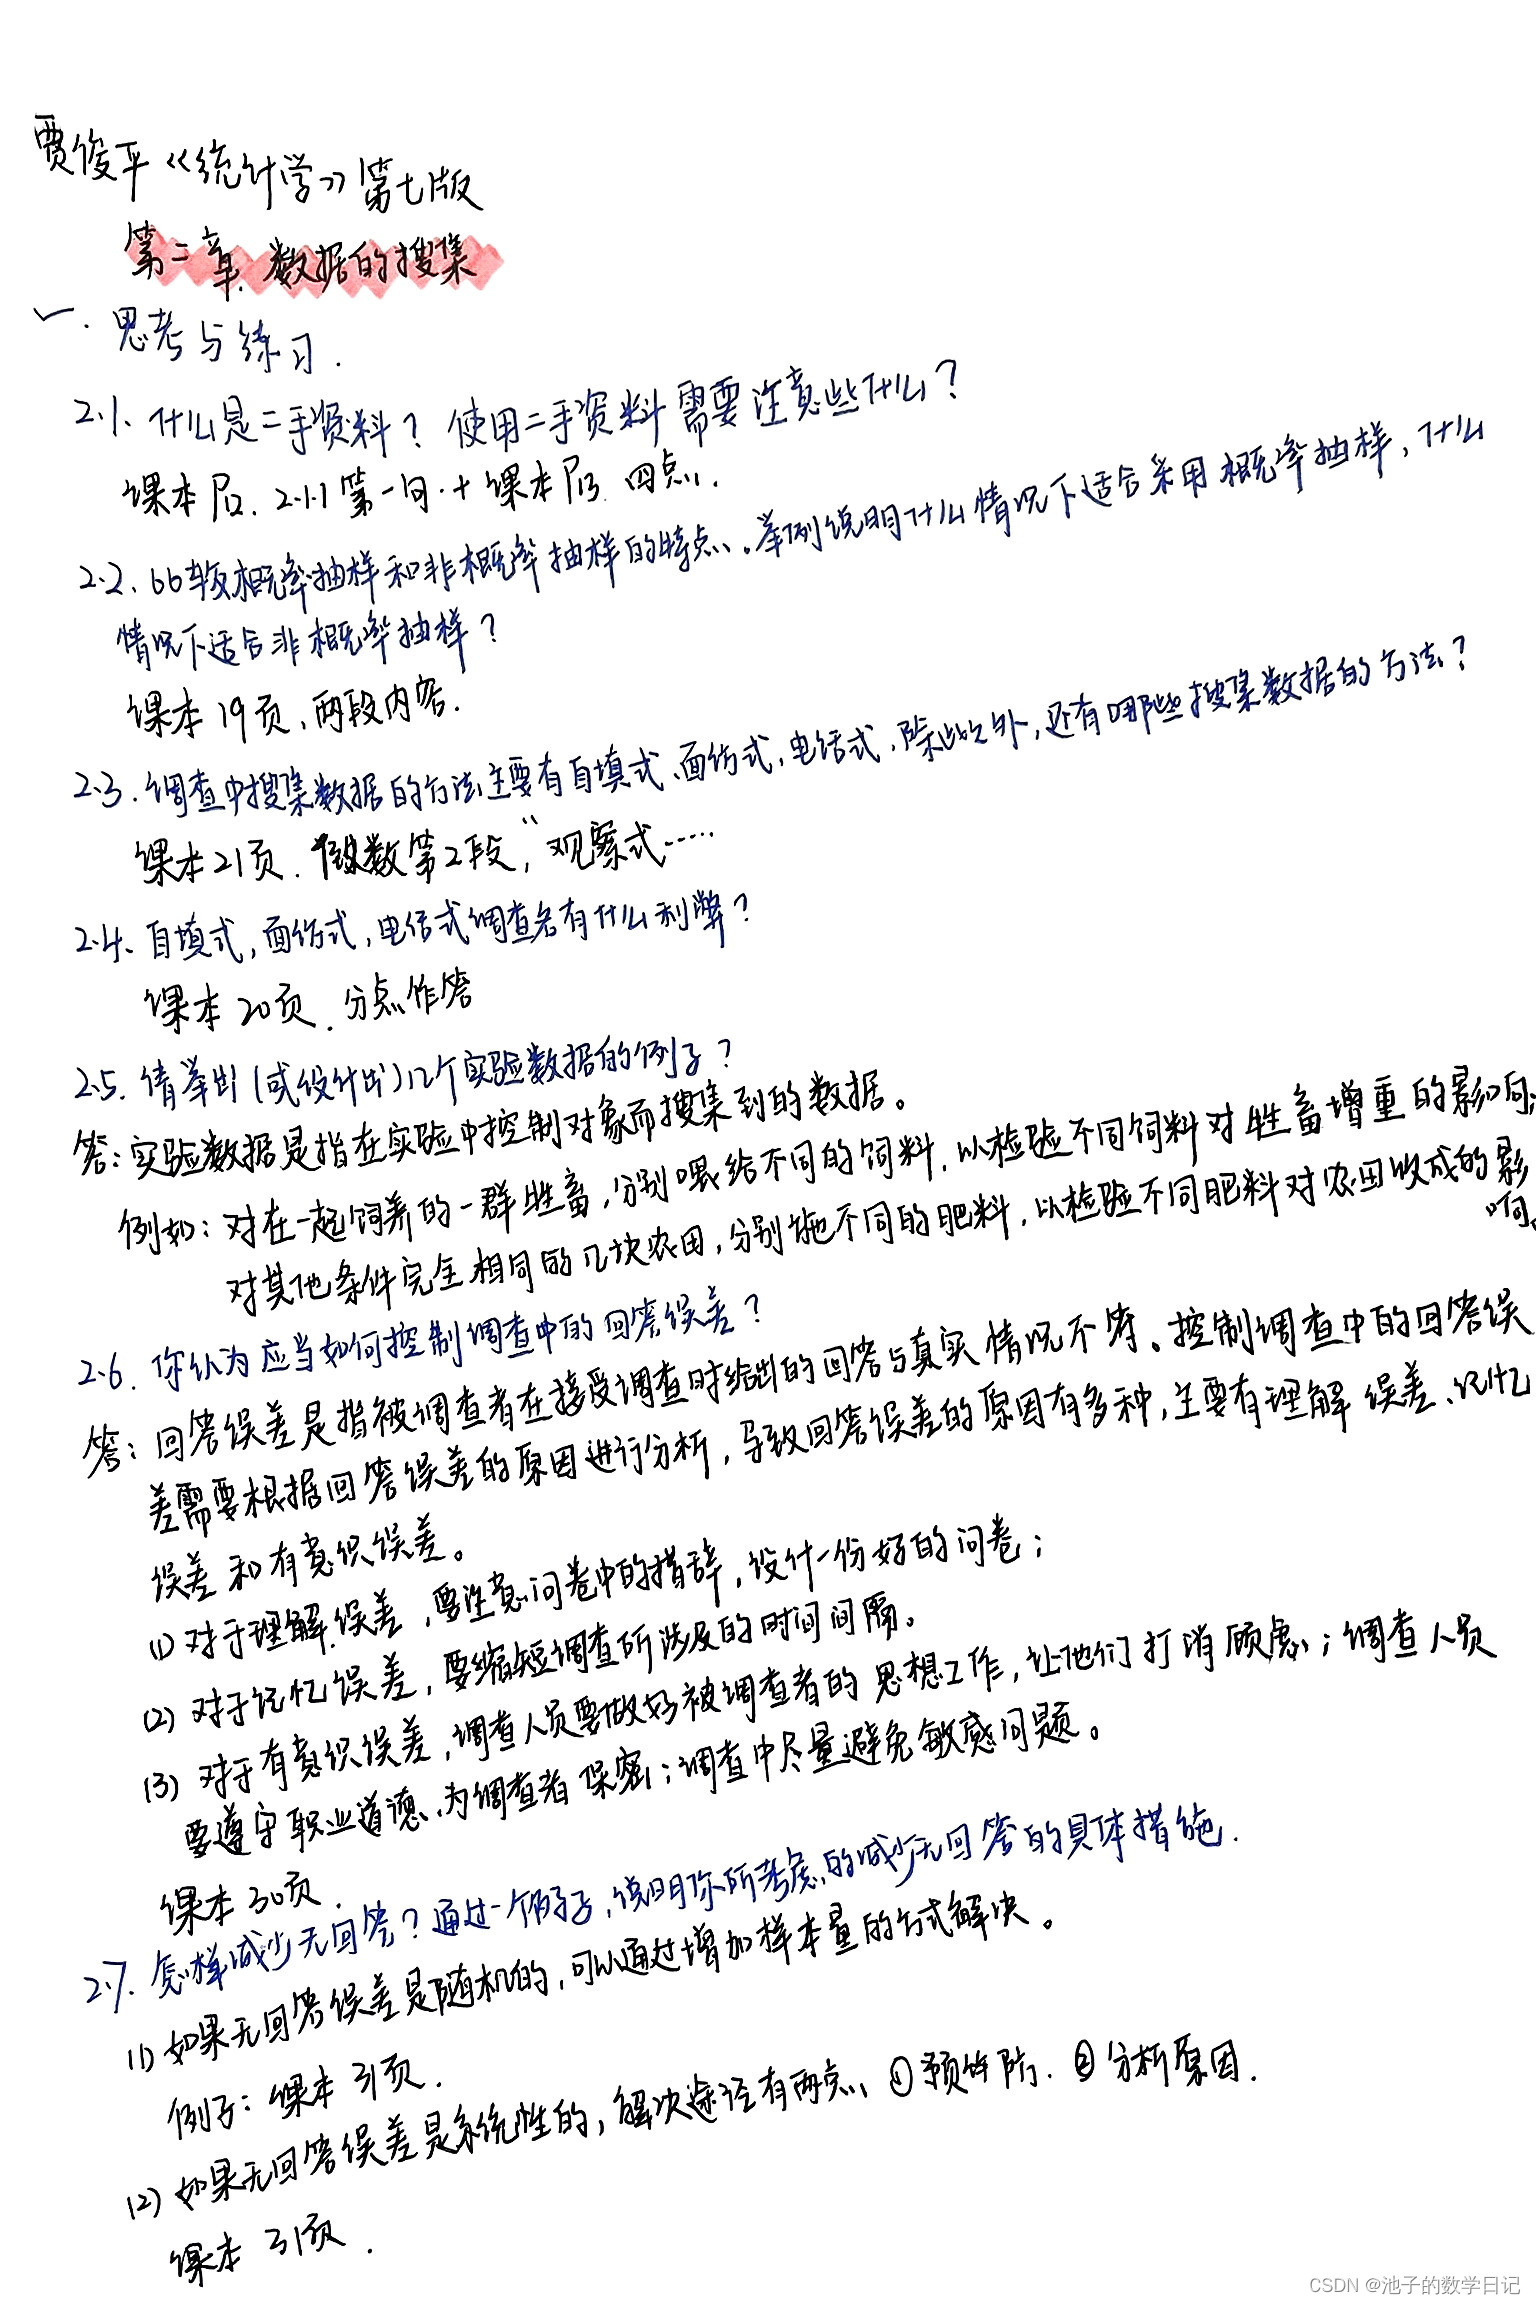 贾俊平《统计学》第七版
第二章.数据的搜集
一.思考与练习.
2.1、什么是二手资料？使用二手资料需要注意些什么？
课本P12. 2.1.1第一句.+课本P13 四点.
2.2、比较概率抽样和非概率抽样的特点、。举例说明什么情况下适合采用概率抽样，什么
情况下适合非概率抽样？
课本19页、两段内容.
2.3.调查中搜集数据的方法主要有自填式、面访式，电话式，除此之外，还有哪些搜集数据的方法？
课本21页.倒数第2段，“观察式……
2.4、自填式，面访式，电话式调查各有什么利弊？
课本20页.分点作答
2.5.请举出(或设计出)几个实验数据的例子？
答：实验数据是指在实验中控制对象而搜集到的数据。
例如：对在一起饲养的一群牲畜，分别喂给不同的饲料，以检验不同饲料对牲畜增重的影响；
对其他条件完全相同的几块农田，分别施不同的肥料，以检验不同肥料对农田收成的影
响。
2.6.你认为应当如何控制调查中的回答误差？
答：回答误差是指被调查者在接受调查时给出的回答与真实情况不符。控制调查中的回答误
差需要根据回答误差的原因进行分析，导致回答误差的原因有多种，主要有理解误差、记忆
误差和有意识误差。
(1)对于理解误差，要注意问卷中的措辞，设计一份好的问卷；
(2)对于记忆误差，要缩短调查所涉及的时间间隔。
(3)对于有意识误差，调查人员要做好被调查者的思想工作，让他们打消顾虑；调查人员
要遵守职业道德、为调查者保密；调查中尽量避免敏感问题。
课本30页.
2.7.怎样减少无回答？通过一个例子，说明你所考虑的减少无回答的具体措施.
(1)如果无回答误差是随机的，可以通过增加样本量的方式解决。
例子：课本31页.
(2)如果无回答误差是系统性的，解决途径有两点、①预防.②分析原因.
课本31页.
CSDN @池子的数学日记